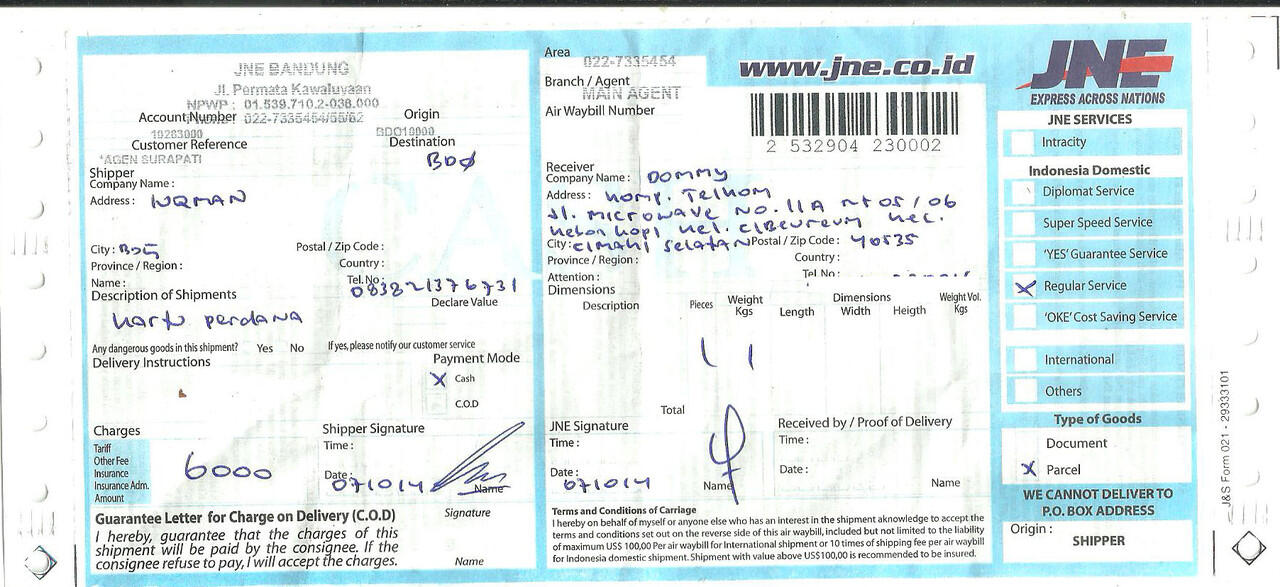 JNE BANDUNG
Jl. Permata Kawaluyaan
NPWP : 01.539.710.2-036.000
Account Number 022-7335454/55/62
Origin
10283000
BDO10000
Customer Reference
Destination
'AGEN SURAPATI
BDO
Shipper
Company Name :
Address : LUQMAN
City : BDG
Postal / Zip Code :
Province / Region :
Country :
Name :
Tel. No :
Description of Shipments
Declare Value
kartu perdana
Any dangerous goods in this shipment? Yes No If yes, please notify our customer service
Delivery Instructions
Payment Mode
X Cash
C.O.D
Charges
Tariff
Other Fee
Insurance
Insurance Adm.
Amount
6000
Shipper Signature
Time :
Date : 071014
Name
Guarantee Letter for Charge on Delivery (C.O.D)
Signature
I hereby, guarantee that the charges of this
shipment will be paid by the consignee. If the
consignee refuse to pay, I will accept the charges.
Name
Area
022-7335454
Branch / Agent
MAIN AGENT
Air Waybill Number
www.jne.co.id
2 532904 230002
Receiver
Company Name : DOMMY
Address : komp. Telkom
Jl. MICROWAVE NO. 11A rt 05 / 06
kebon kopi kel. CIBEUREUM kec.
City : CIMAHI SELATAN Postal / Zip Code : 40535
Province / Region :
Country :
Attention :
Tel. No :
Dimensions
Description
Pieces
Weight
Kgs
Dimensions
Length Width Heigth
Weight Vol.
Kgs
1 1
Total
JNE Signature
Time :
Date : 071014
Name
Received by / Proof of Delivery
Time :
Date :
Name
Terms and Conditions of Carriage
I hereby on behalf of myself or anyone else who has an interest in the shipment aknowledge to accept the
terms and conditions set out on the reverse side of this air waybill, included but not limited to the liability
of maximum US$ 100,00 Per air waybill for International shipment or 10 times of shipping fee per air waybill
for Indonesia domestic shipment. Shipment with value above US$100,00 is recommended to be insured.
JNE
EXPRESS ACROSS NATIONS
JNE SERVICES
Intracity
Indonesia Domestic
Diplomat Service
Super Speed Service
'YES' Guarantee Service
X Regular Service
'OKE' Cost Saving Service
International
Others
Type of Goods
Document
X Parcel
WE CANNOT DELIVER TO
P.O. BOX ADDRESS
Origin :
SHIPPER
J&S Form 021 - 29333101